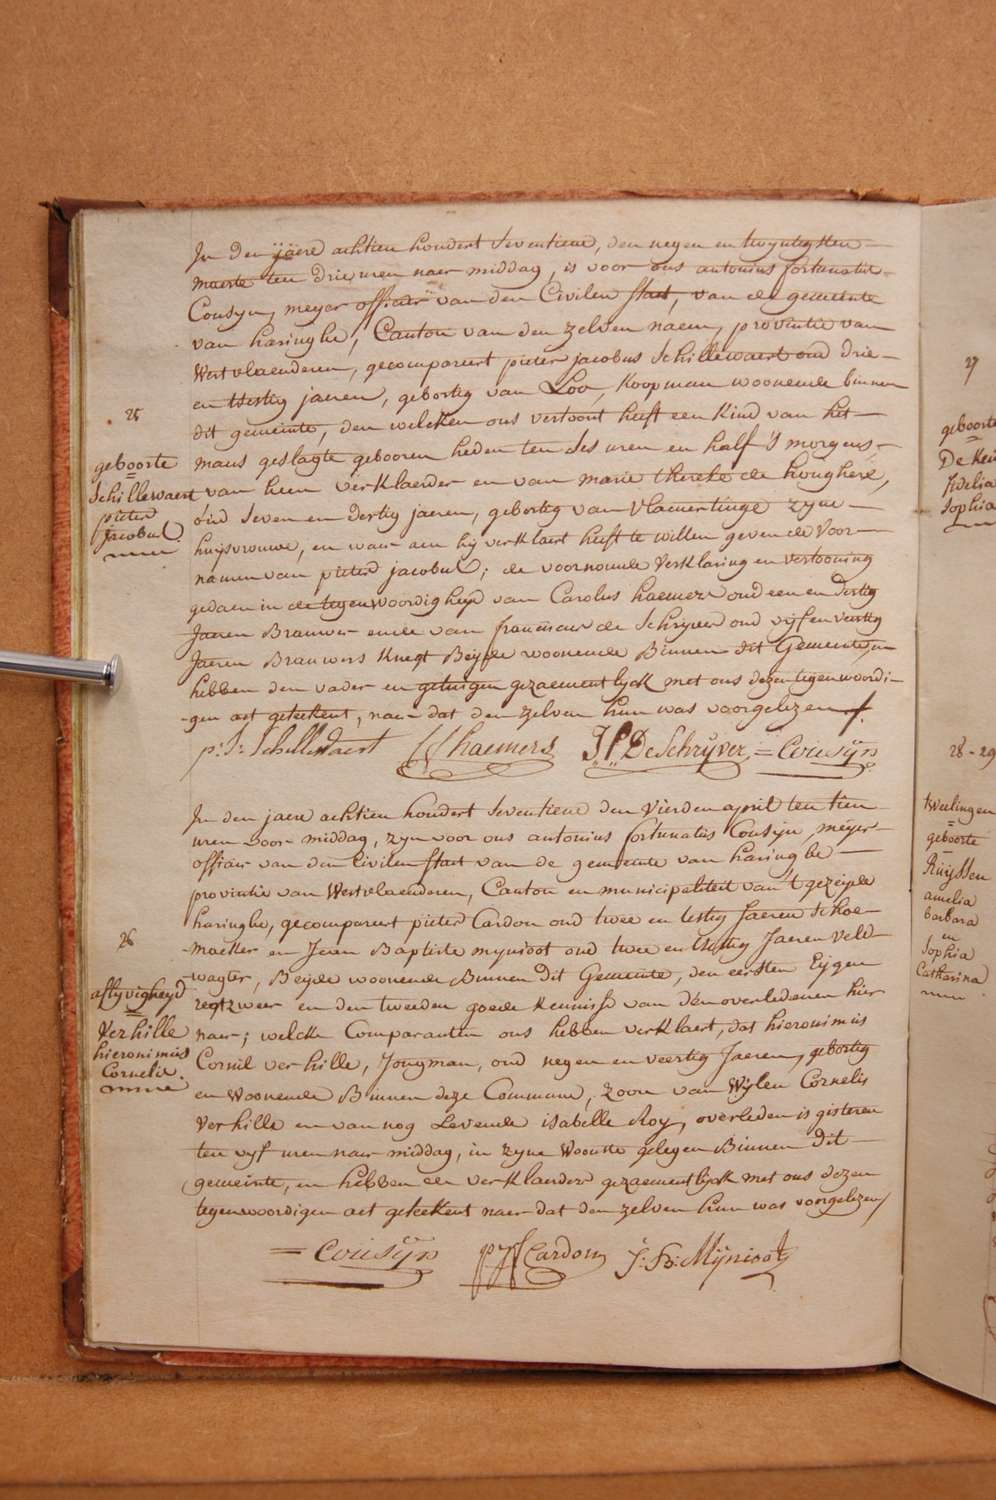 25
geboorte
Schillewaert
pieter
jacobus
In den jaere achtien hondert seventiene, den negen en twyntigsten
maerte ten drie uren naer middag, is voor ons antonius fortunatus
Cousyn, meyer officier van den Civilen staet, van de gemeente
van haringhe, Canton van den zelven naem, provintie van
Westvlaenderen, gecompareert pieter jacobus Schillewaert oud drie
en dertig jaeren, gebortig van Loo, Koopman woonende binnen
dit gemeinte, den welcken ons vertoont heeft een Kind van het
mans geslagte gebooren heden ten ses uren en half 's morgens,
van hem verklaerder en van marie therese de houghere,
oud seven en dertig jaeren, gebortig van Vlamertinge zyne
huijsvrouwe, en waer aen hij verklaert heeft te willen geven de voor-
namen van pieter jacobus; de voornomde Verklaring en vertooning
gedaen in de tegenwoordigheyd van Carolus haemers oud een en dertig
Jaeren Brauwer ende van franciscus de Schryver oud vijf en veertig
Jaeren Brauwers Knegt Beijde woonende Binnen dit Gemeente, en
hebben den vader en getuigen gezaementlyck met ons dezen tegenwoordi-
gen act geteekent, naer dat den zelven hun was voorgelezen
p: J: Schillewaert C haemers J: f: De Schrÿver = Cousÿn
26
aflyvigheyd
Verhille
hieronimus
Cornelis
In den jaere achtien hondert seventiene den vierden april ten tien
uren voor middag, zyn voor ons antonius fortunatus Cousyn, meyer
officier van den Civilen staet van de gemeente van haringhe
provintie van Westvlaenderen, Canton en municipaliteit van 't gezeyde
haringhe, gecompareert pieter Cardon oud twee en sestig Jaeren schoe-
maeker en Jean Baptiste mynioot oud twee en dertig Jaeren Veld-
wagter, Beijde woonende Binnen dit Gemeente, den eersten Eijgen
regtzweer en den tweeden goede kennisse van den overledenen hier
naer; welcke Comparanten ons hebben verklaert, dat hieronimus
Cornil verhille, Jongman, oud negen en veertig Jaeren, gebortig
en Woonende Binnen deze Commune, zoon van Wylen Cornelis
Verhille en van nog Levende isabelle Roy, overleden is gisteren
ten vyf uren naer middag, in zyne Woonste gelegen Binnen dit
gemeinte, en hebben de verklaerders gezaementlyck met ons dezen
tegenwoordigen act geteekent naer dat den zelven hun was voorgelezen
= Cousÿn p J f Cardon J: B: Mÿnioot
27
geboorte
Sophia
28 - 29
tweelingen
geboorte
Ruijssen
amelia
barbara
en
Sophia
Catharina